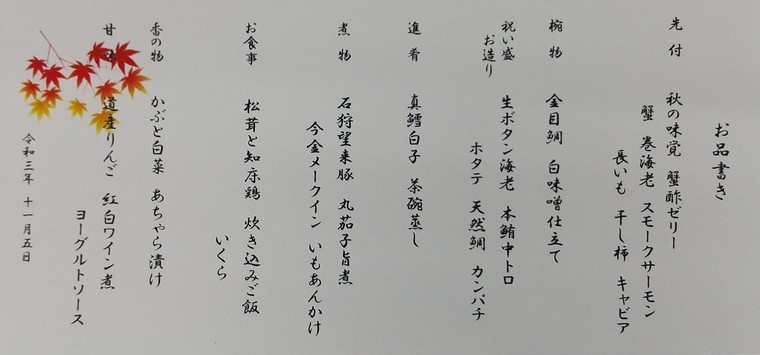 お品書き
先付　秋の味覚　蟹酢ゼリー
蟹　巻海老　スモークサーモン
長いも　干し柿　キャビア
椀物　金目鯛　白味噌仕立て
祝い盛
お造り　生ボタン海老　本鮪中トロ
ホタテ　天然鯛　カンパチ
進肴　真鱈白子　茶碗蒸し
煮物　石狩望来豚　丸茄子旨煮
今金メークイン　いもあんかけ
お食事　松茸と知床鶏　炊き込みご飯
いくら
香の物　かぶと白菜　あちゃら漬け
甘　道産りんご　紅白ワイン煮
ヨーグルトソース
令和三年　十一月五日